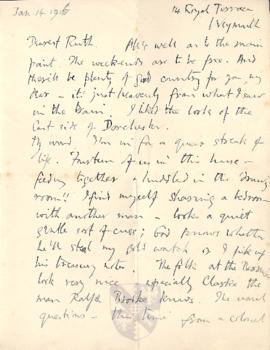 Jan. 14. 1916
14 Royal Terrace
Weymouth
Dearest Ruth All's well as to the main
point. The weekends are to be free. And
there'll be plenty of good country for you my
dear – it's just heavenly from what I saw
in the train. I liked the look of the
East side of Dorchester.
My word I'm in for a queer streak of
life. Fourteen of us in this house –
feeding together & huddled in the dining
room!! I find myself sharing a bedroom
with another man – looks a quiet
gentle sort of cuss; God knows whether
he'll steal my gold watch or I pick up
his treasury notes. The folk at the
look very nice especially Clarke the
man Ralph Brooke knows. The usual
questions – this time from a colonel